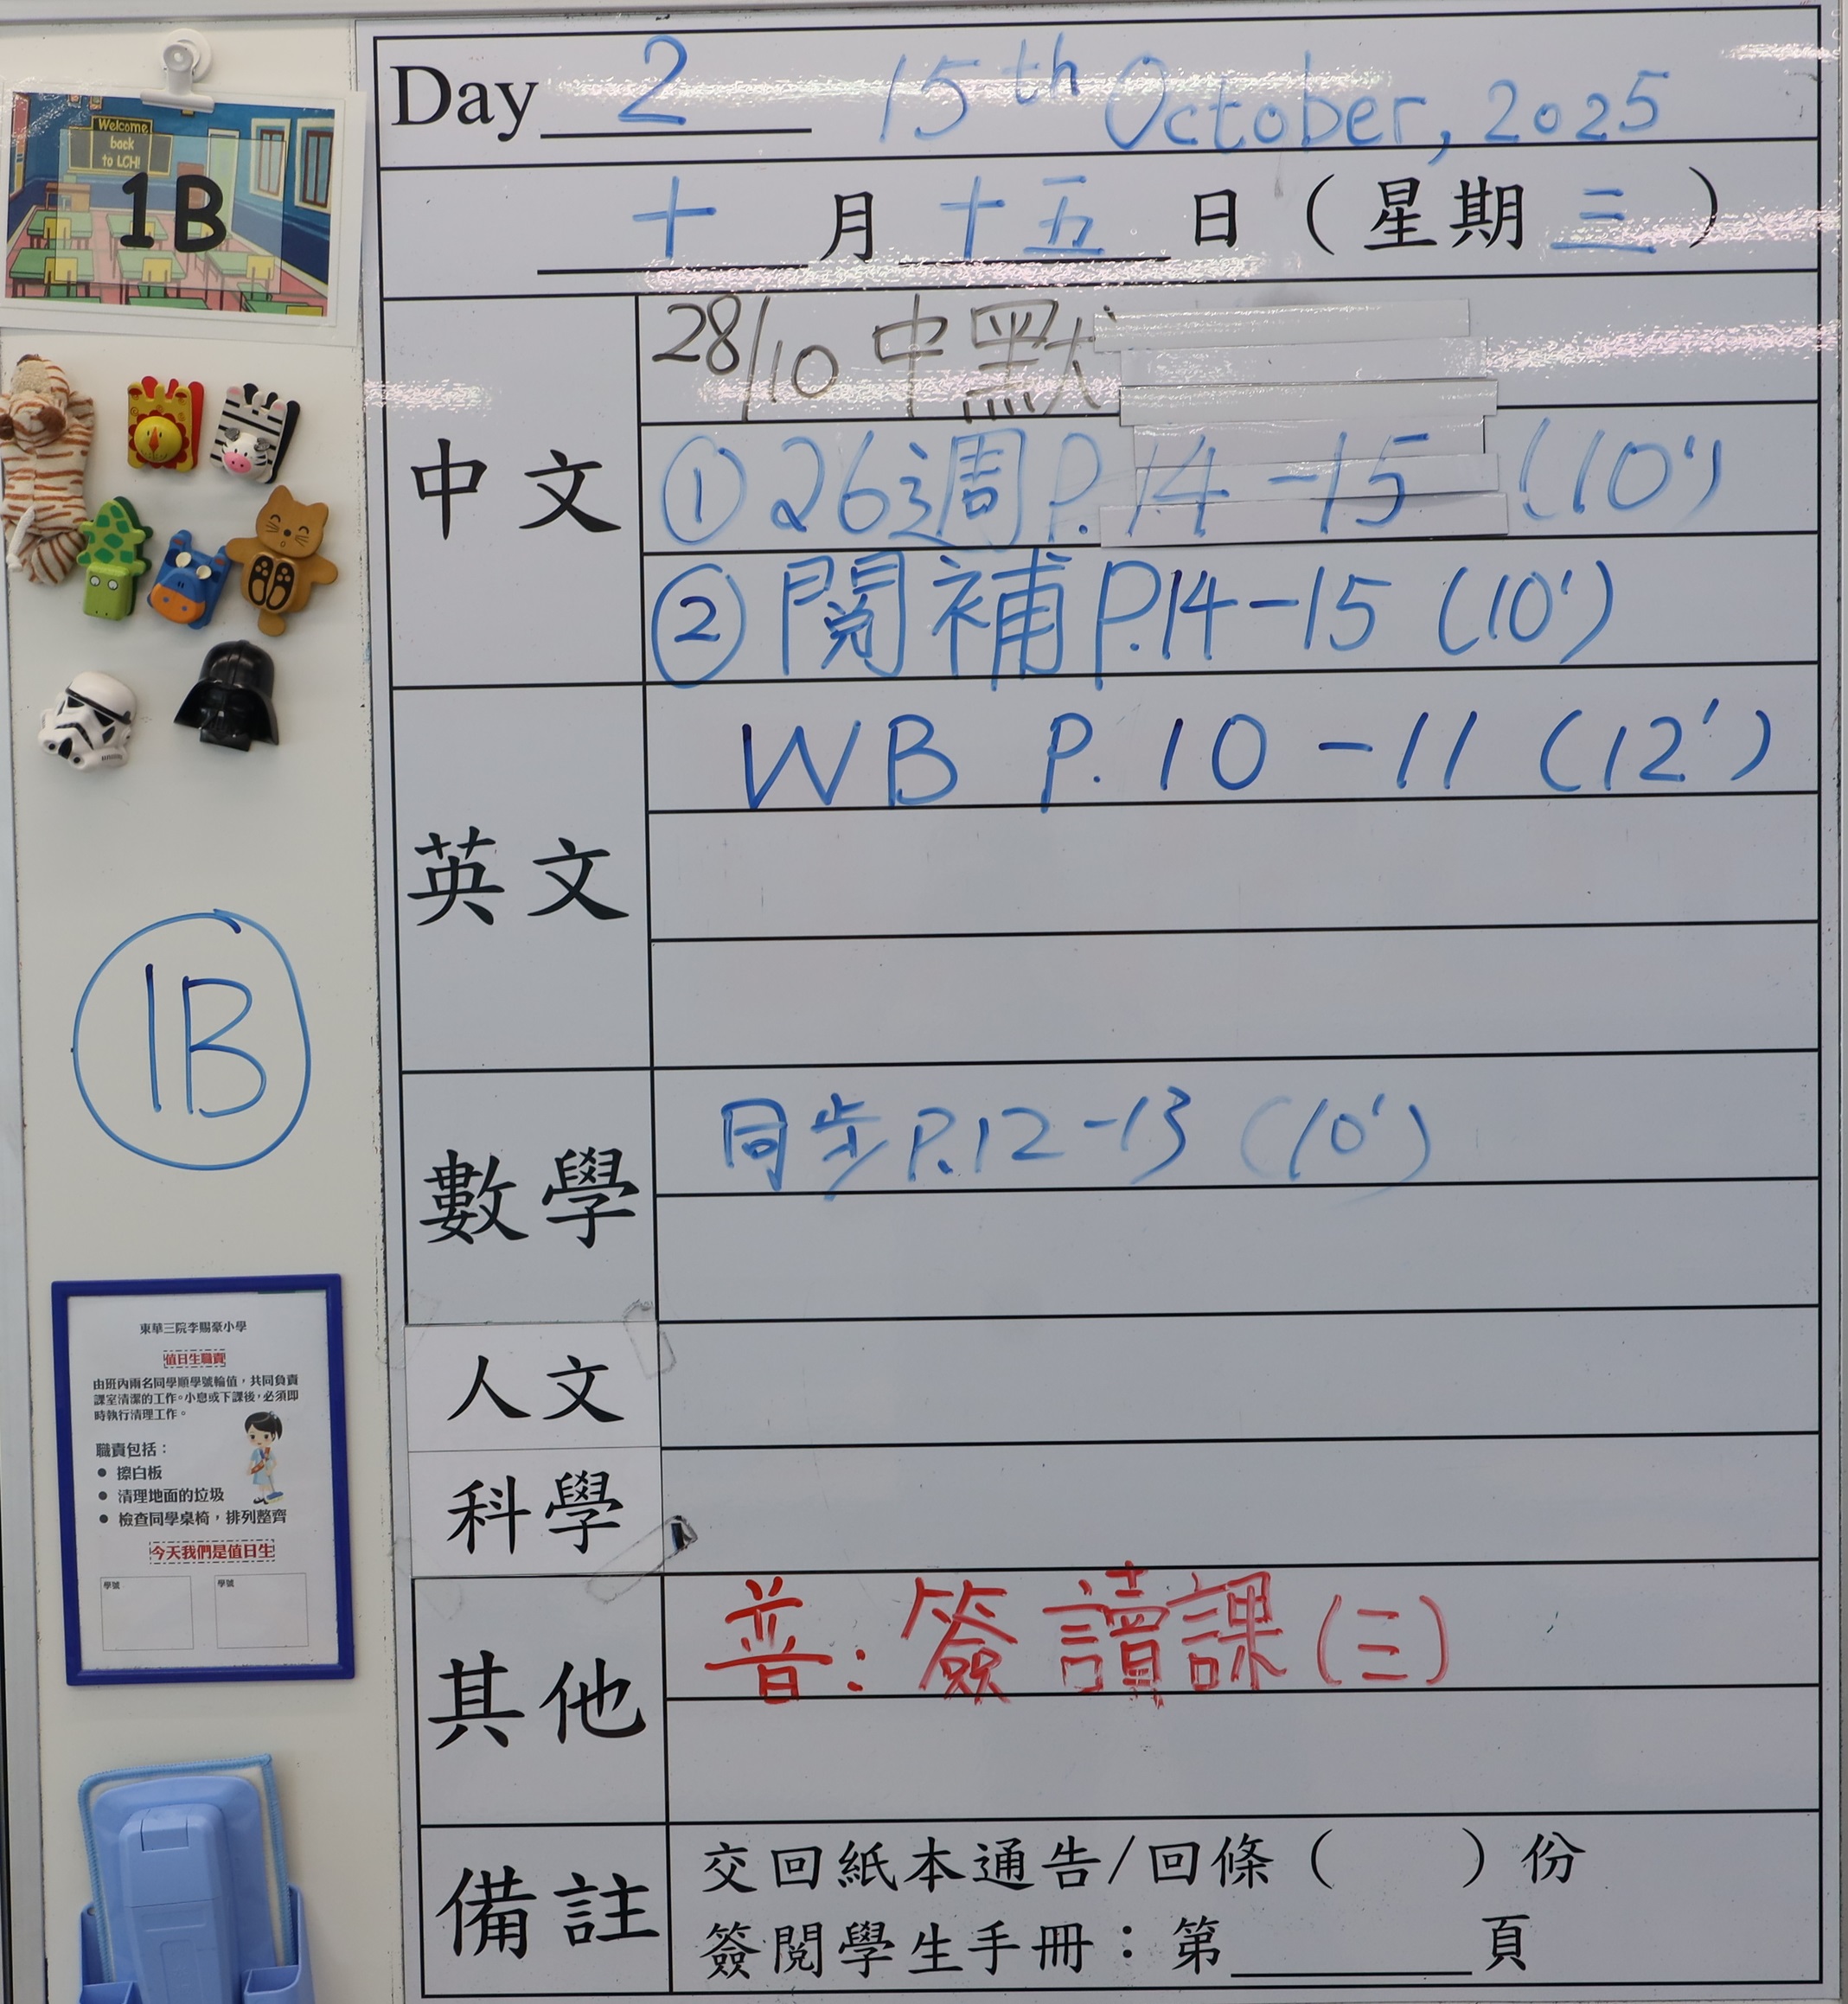 Welcome
back
to LCH!
1B
Day 2 15th October, 2025
十 月 十五 日 (星期 三)
中文
28/10 中默
① 26週 P.14-15 (10')
② 閱補 P.14-15 (10')
英文
WB P. 10-11 (12')
1B
數學
同步 P.12-13 (10')
人文
科學
其他
普: 簽讀課(三)
備註
交回紙本通告/回條 ( ) 份
簽閱學生手冊：第 頁
東華三院李賜豪小學
值日生職責
由班內兩名同學順學號輪值，共同負責
課室清潔的工作。小息或下課後，必須即
時執行清理工作。
職責包括：
● 擦白板
● 清理地面的垃圾
● 檢查同學桌椅，排列整齊
今天我們是值日生
學號 學號